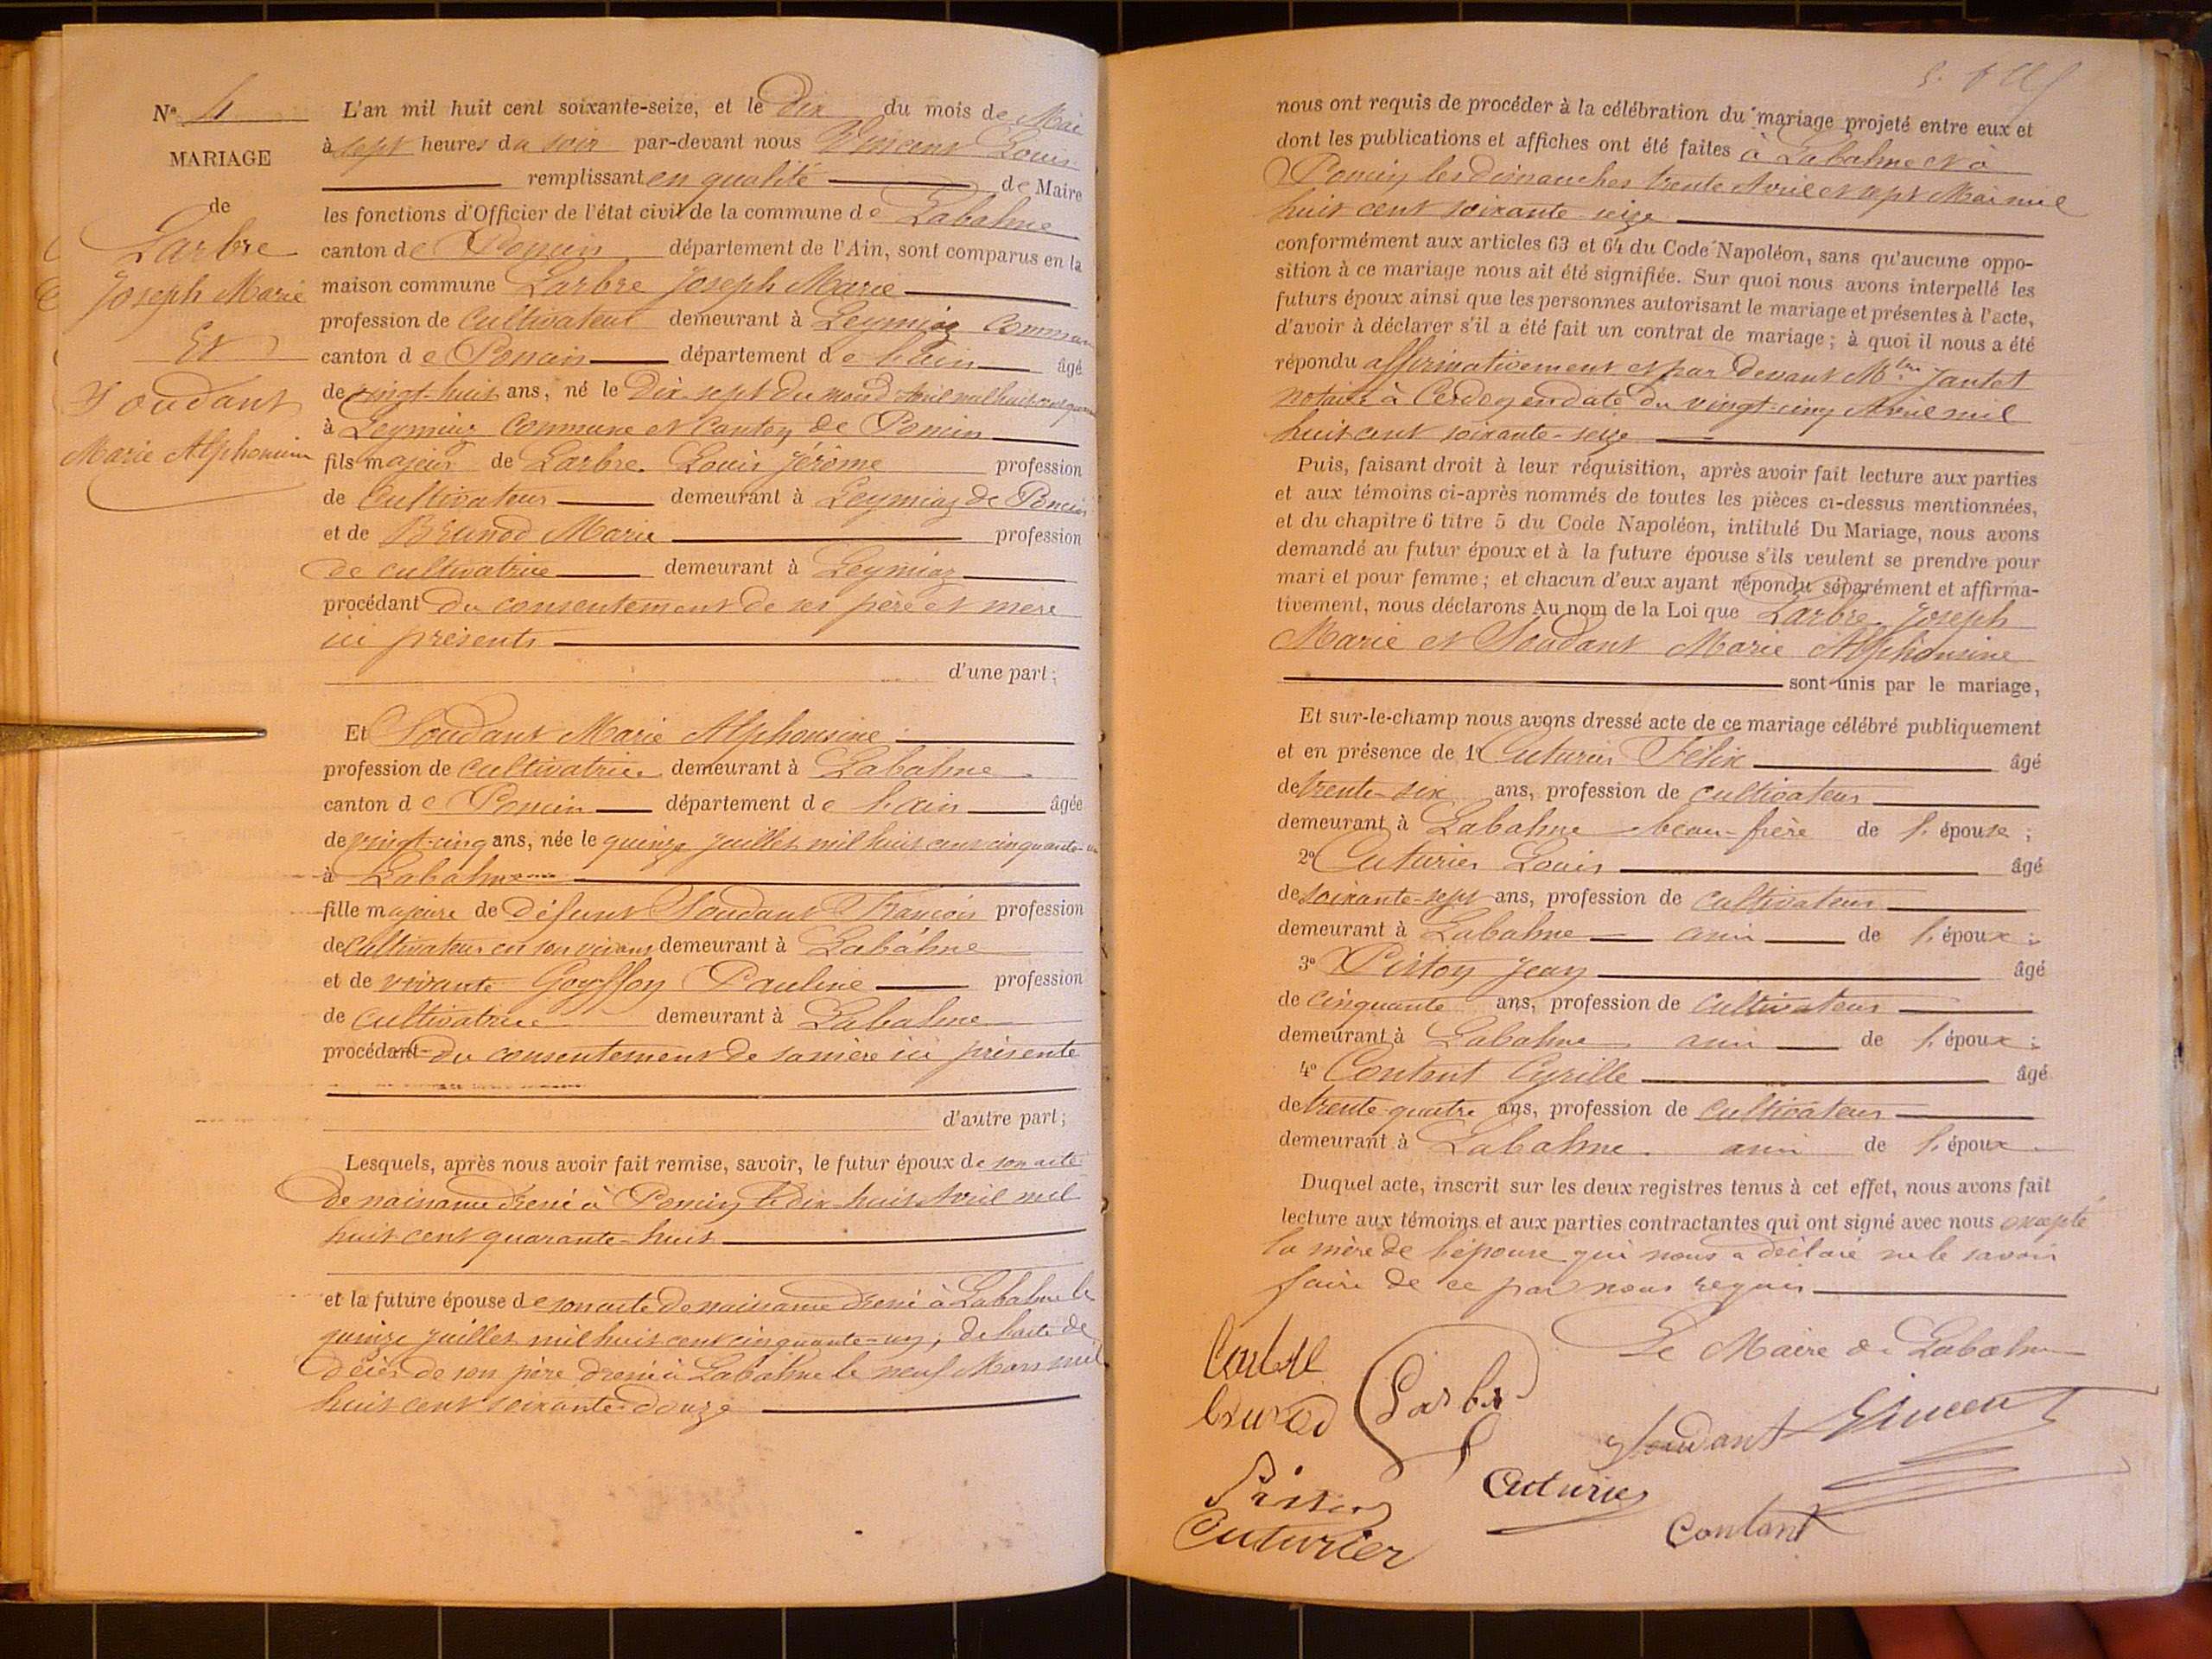 Nº 4
MARIAGE
de
Larbre
Joseph Marie
Et
Soudant
Marie Alphonsine
L'an mil huit cent soixante-seize, et le Dix du mois de Mai
à sept heures du soir par-devant nous Vincent Louis
remplissant en qualité de Maire
les fonctions d'Officier de l'état civil de la commune de Labalme
canton de Poncin département de l'Ain, sont comparus en la
maison commune Larbre Joseph Marie
profession de Cultivateur demeurant à Leymiaz Commune
canton de Poncin département de l'ain âgé
de vingt-huit ans, né le Dix sept du mois d'avril mil huit cent
à Leymiaz Commune et Canton de Poncin
fils majeur de Larbre Louis Jérôme profession
de Cultivateur demeurant à Leymiaz de Poncin
et de Brunod Marie profession
de cultivatrice demeurant à Leymiaz
procédant du consentement de ses père et mère
ici présents
d'une part;
Et Soudant Marie Alphonsine
profession de Cultivatrice demeurant à Labalme
canton de Poncin département de l'ain âgée
de vingt-cinq ans, née le quinze juillet mil huit cent cinquante-un
à Labalme
fille majeure de Défunt Soudant François profession
de Cultivateur en son vivant demeurant à Labalme
et de vivante Gouffon Pauline profession
de Cultivatrice demeurant à Labalme
procédant du consentement de sa mère ici présente
d'autre part;
Lesquels, après nous avoir fait remise, savoir, le futur époux de son acte
de naissance dressé à Poncin le dix-huit Avril mil
huit cent quarante-huit
et la future épouse de son acte de naissance dressé à Labalme le
quinze juillet mil huit cent cinquante-un; de l'acte de
décès de son père dressé à Labalme le neuf Mars mil
huit cent soixante-douze
nous ont requis de procéder à la célébration du mariage projeté entre eux et
dont les publications et affiches ont été faites à Labalme et à
Poncin les dimanches trente Avril et sept Mai mil
huit cent soixante-seize
conformément aux articles 63 et 64 du Code Napoléon, sans qu'aucune oppo-
sition à ce mariage nous ait été signifiée. Sur quoi nous avons interpellé les
futurs époux ainsi que les personnes autorisant le mariage et présentes à l'acte,
d'avoir à déclarer s'il a été fait un contrat de mariage; à quoi il nous a été
répondu affirmativement et par devant Mtre Jantet
notaire à Cerdon en date du vingt-cinq Avril mil
huit cent soixante-seize
Puis, faisant droit à leur réquisition, après avoir fait lecture aux parties
et aux témoins ci-après nommés de toutes les pièces ci-dessus mentionnées,
et du chapitre 6 titre 5 du Code Napoléon, intitulé Du Mariage, nous avons
demandé au futur époux et à la future épouse s'ils veulent se prendre pour
mari et pour femme; et chacun d'eux ayant répondu séparément et affirma-
tivement, nous déclarons Au nom de la Loi que Larbre Joseph
Marie et Soudant Marie Alphonsine
sont unis par le mariage,
Et sur-le-champ nous avons dressé acte de ce mariage célébré publiquement
et en présence de 1º Cuturier Félix âgé
de trente-six ans, profession de cultivateur
demeurant à Labalme beau-frère de l'épouse;
2º Cuturier Louis âgé
de soixante-sept ans, profession de Cultivateur
demeurant à Labalme ami de l'époux;
3º Piston Jean âgé
de Cinquante ans, profession de Cultivateur
demeurant à Labalme ami de l'époux;
4º Contant Cyrille âgé
de trente-quatre ans, profession de Cultivateur
demeurant à Labalme ami de l'époux
Duquel acte, inscrit sur les deux registres tenus à cet effet, nous avons fait
lecture aux témoins et aux parties contractantes qui ont signé avec nous excepté
la mère de l'épouse qui nous a déclaré ne le savoir
faire de ce par nous requis
Le Maire de Labalme
Larbre
brunod
Soudant
Vincent
Piston
Cuturier
Cuturier
Contant